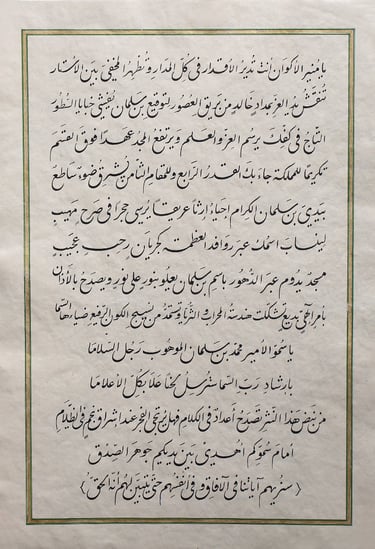 يا منير الأكوان أنت تدير الأقدار في كل المدار وتظهر المخفي بين الأستار
تنقش يد العز بمداد خالد من بريق العصور لتوقيع بن سلمان يفيض خبايا النطور
التاج في كفك يرسم العز والعلم ويرتفع المجد عهدا فوق القمم
تكريما للمملكة جاء بك القدر الرابع وللمقام الثامن يشرق ضوء ساطع
بيدي بن سلمان الكرام إحياء إرثا عريقا يرسي حجرا في صرح مهيب
لينساب اسمك عبر وافد العظمة كجريان رحب عجيب
مسجد يدوم عبر الدهور باسم بن سلمان يعلو بنور على نور ويصدح بالأذان
بأمر إلهي بديع تشكلت هندسة المحراب الثرثنا وتستمد من نسيج الكون الرفيع ضياءها السما
يا سمو الأمير محمد بن سلمان الموهوب رجل السلاما
بإرشاد رب السما سترسل لحنا علا بكل الأعلاما
من نبض هذا النثر تصدح أعداد في الكلام فهل يرتجى الفجر عند إشراق نجم في الظلام
أمام سموكم أهدي بين يديكم جوهر الصدق
﴿ سنريهم آياتنا في الآفاق و في أنفسهم حتى يتبين لهم أنه الحق ﴾